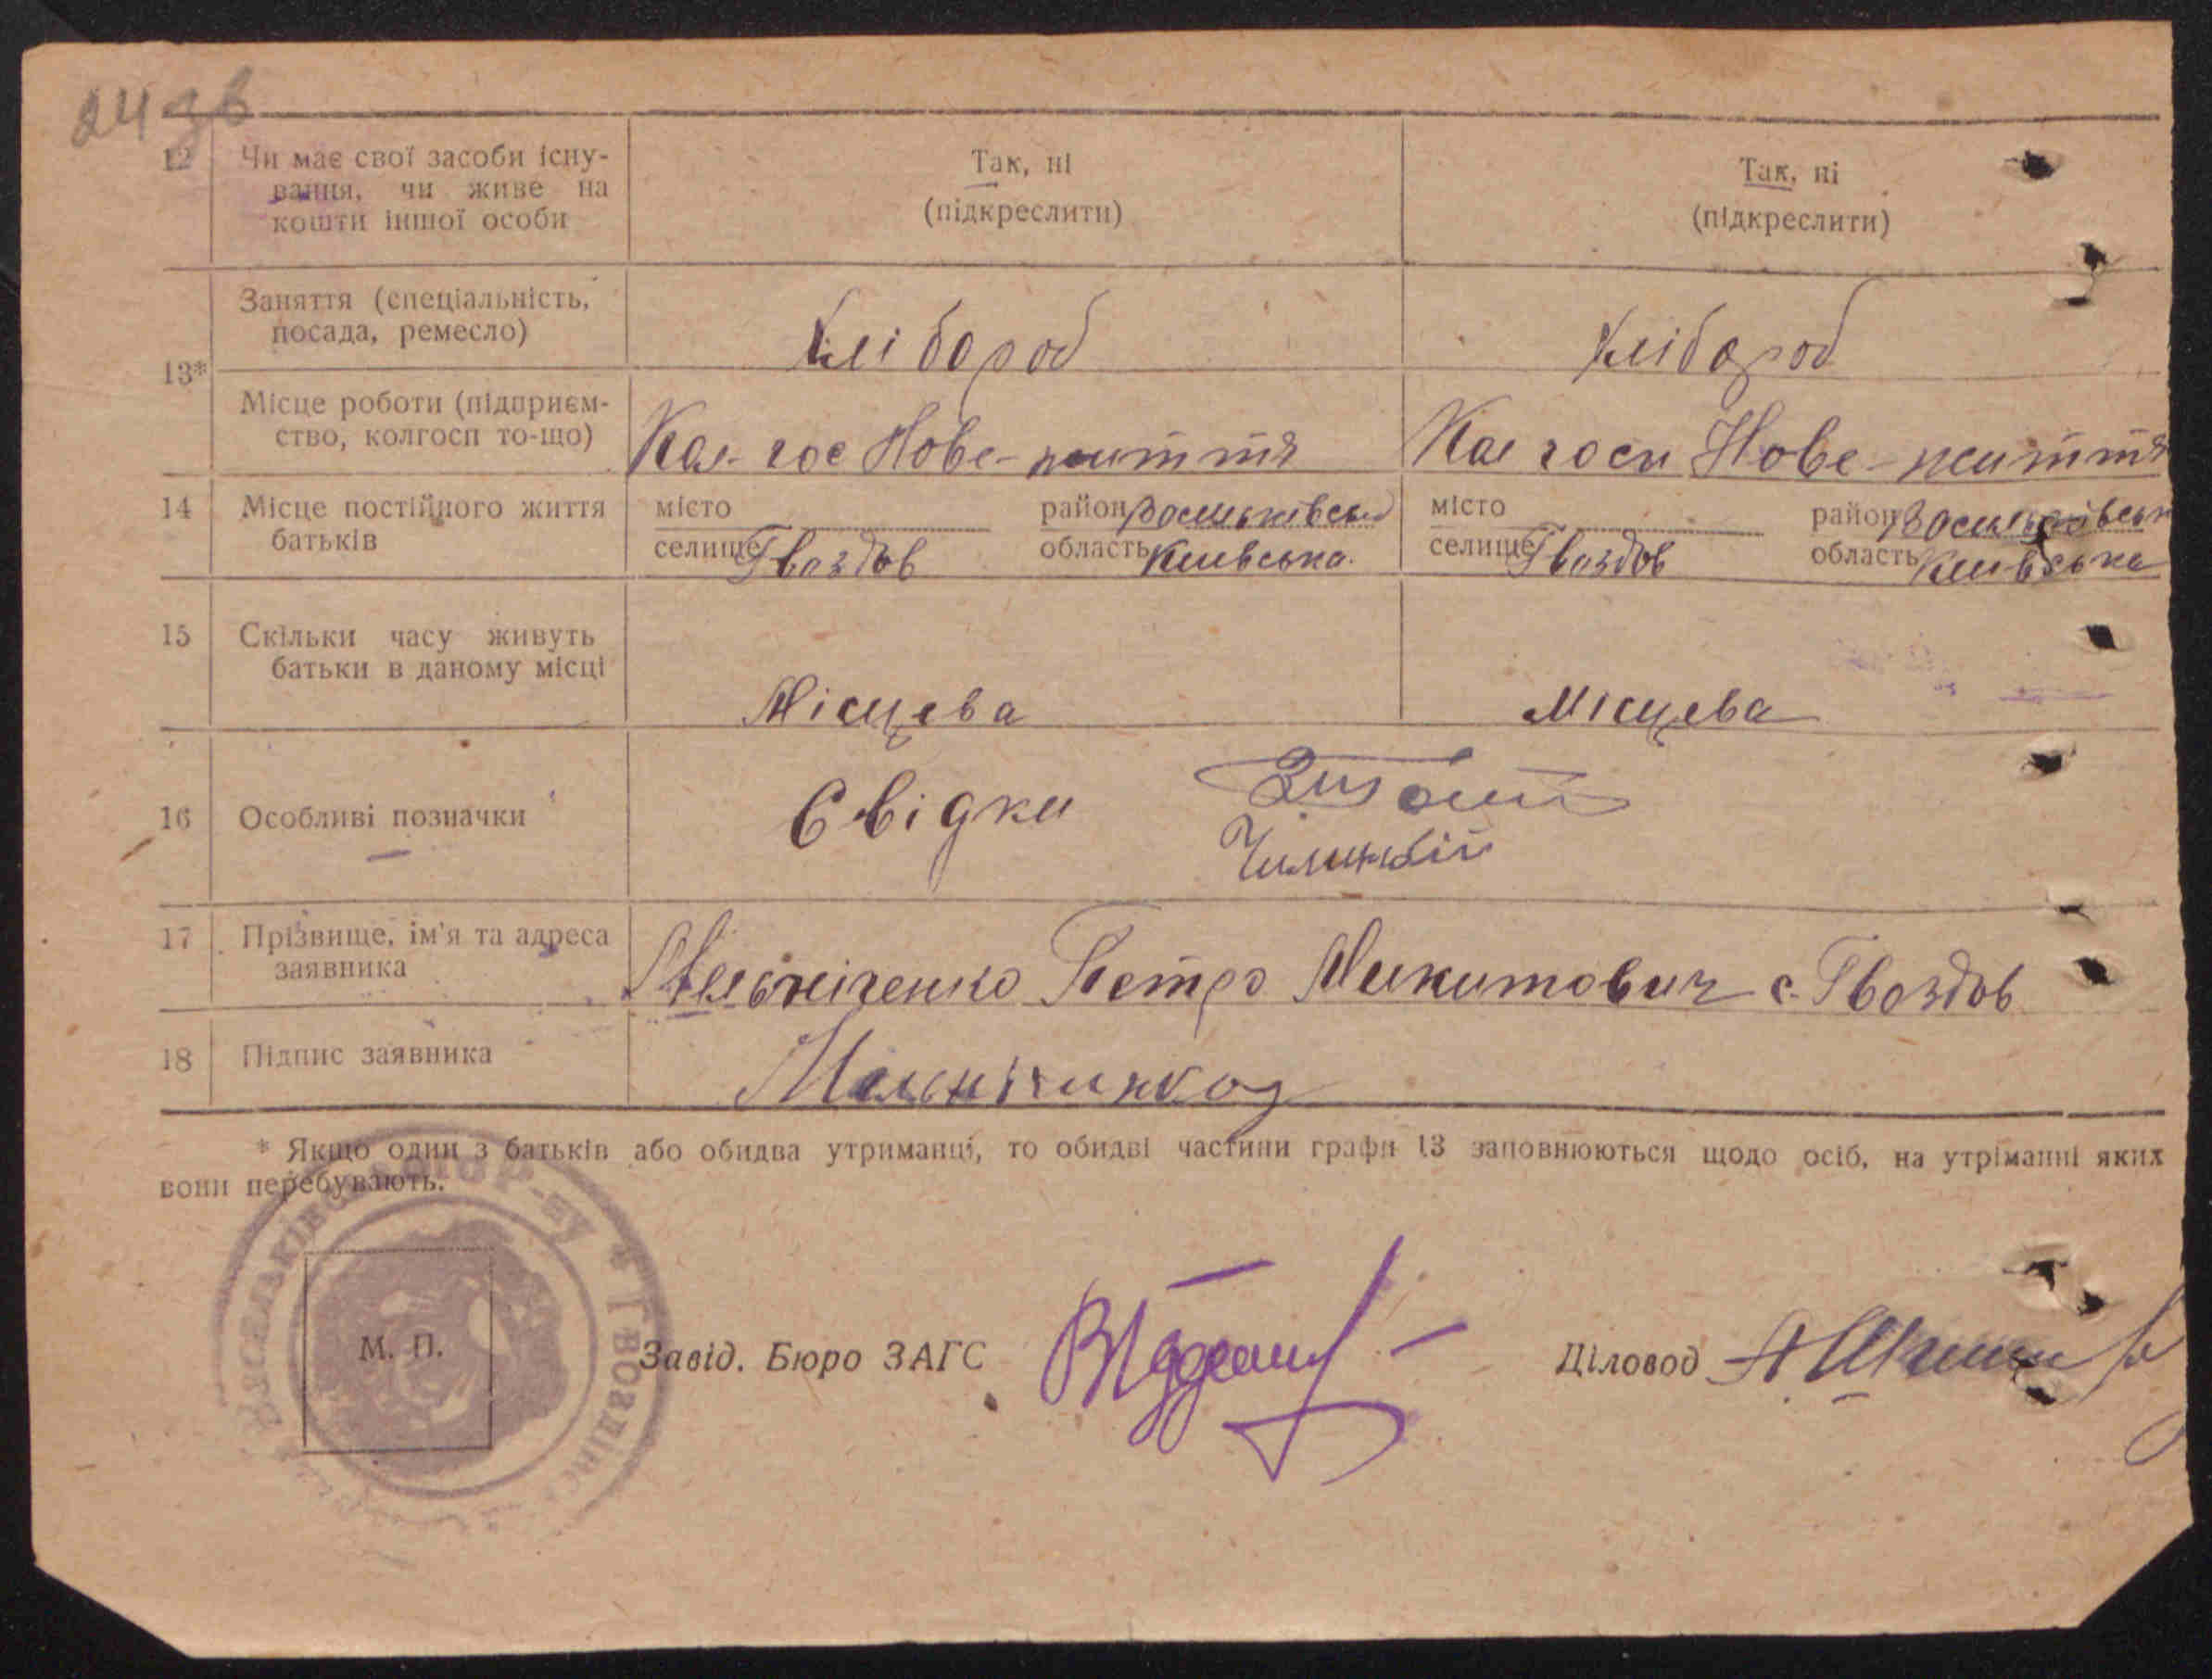 24 зв
12 Чи має свої засоби існу- Так, ні Так, ні
вання, чи живе на (підкреслити) (підкреслити)
кошти іншої особи
Заняття (спеціальність,
посада, ремесло) Хлібороб Хлібороб
13*
Місце роботи (підприєм-
ство, колгосп то-що) Кол гос Нове-життя Кол госп Нове-життя
14 Місце постійного життя місто район Васильківськ місто район Васильківськ
батьків селище Гвоздов область Київська. селище Гвоздов область Київська
15 Скільки часу живуть
батьки в даному місці
Місцева Місцева
16 Особливі позначки Свідки
17 Прізвище, ім'я та адреса
заявника Мельніченко Петро Микитович с. Гвоздов
18 Підпис заявника
* Якщо один з батьків або обидва утриманці, то обидві частини графи 13 заповнюються щодо осіб, на утріманні яких
вони перебувають.
М. П. Завід. Бюро ЗАГС Діловод